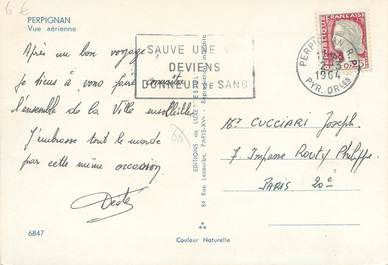 6 €
PERPIGNAN
Vue aérienne
SAUVE UNE
DEVIENS
DONNEUR DE SANG
PERPIGNAN
1964
PYR. ORLES
FRANÇAISE
Après un bon voyage,
Je tiens à vous faire connaitre
l'ensemble de la Ville ensoleillée
J'embrasse tout le monde
par cette même occasion
ÉDITIONS DE LUXE
84 Rue Lecourbe, PARIS-XVe - Reproduction interdite
Mr CUCCIARI Joseph.
7 Impasse Routy Philippe.
PARIS 20e
6847
Couleur Naturelle